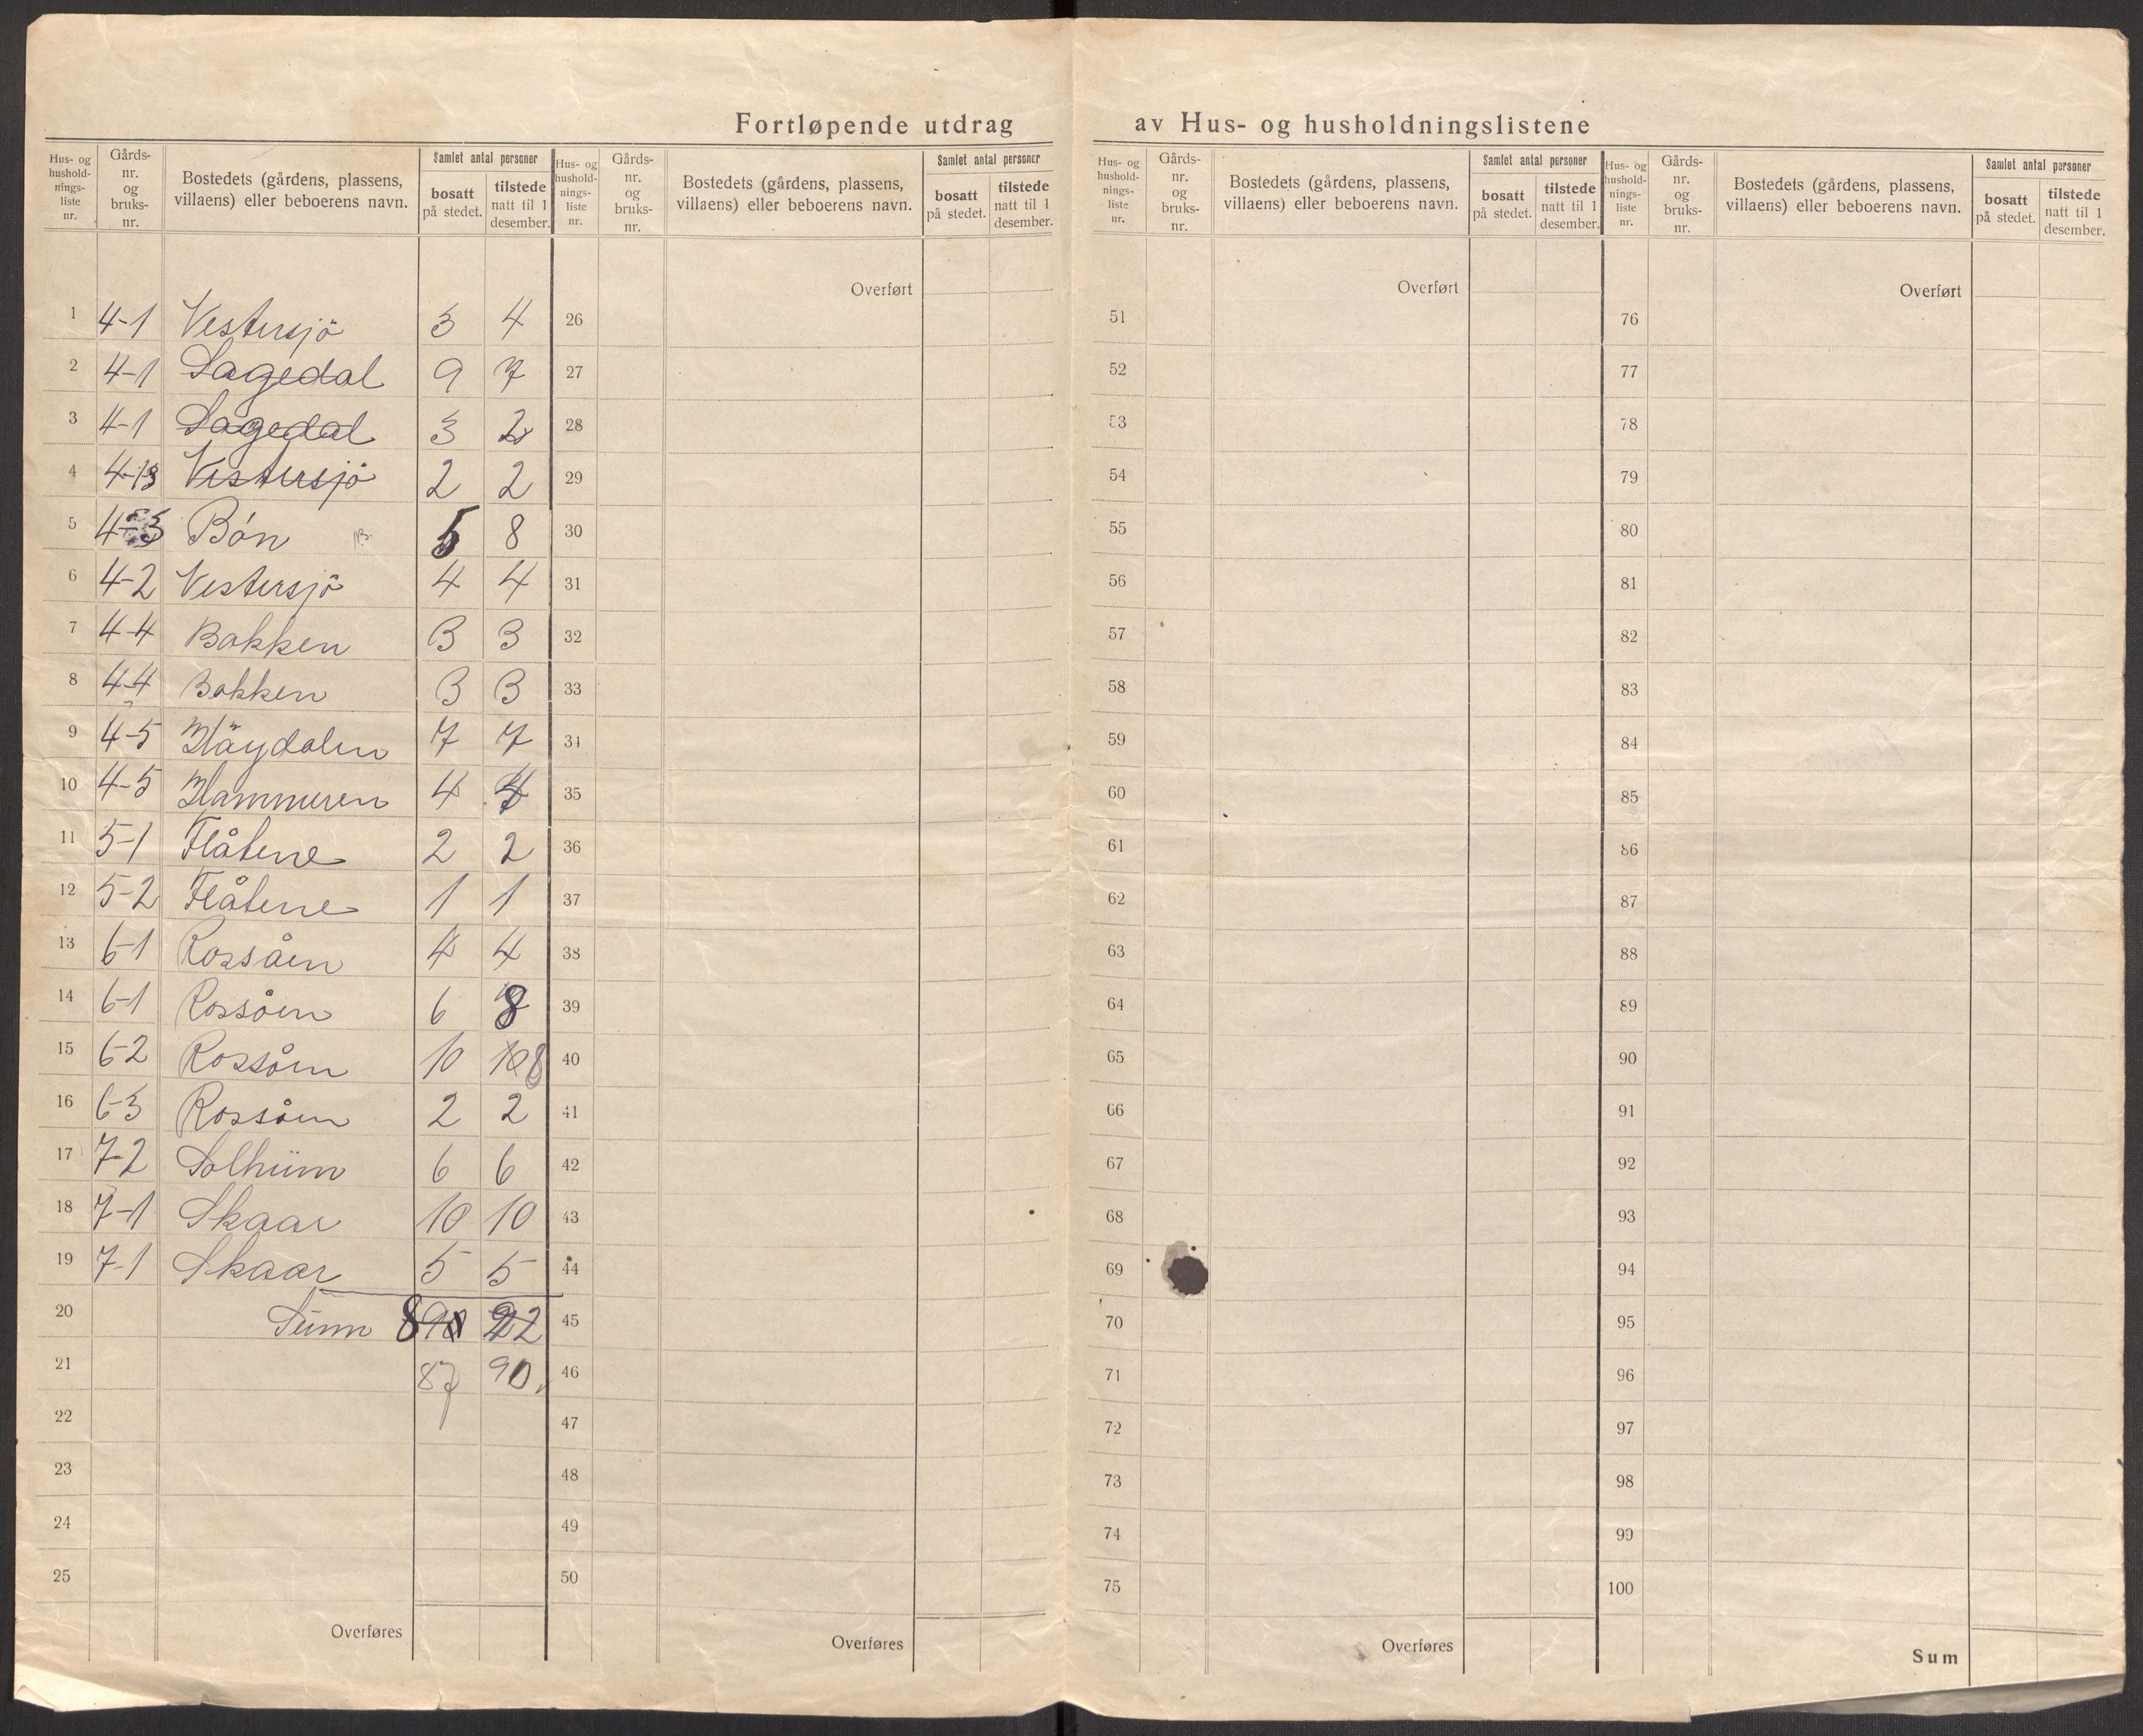 Fortløpende utdrag av Hus- og husholdningslistene
Hus- og hushold-nings-liste nr. | Gårds-nr. og bruks-nr. | Bostedets (gårdens, plassens, villaens) eller beboerens navn. | Samlet antal personer | bosatt på stedet. | tilstede natt til 1 desember.
Hus- og hushold-nings-liste nr. | Gårds-nr. og bruks-nr. | Bostedets (gårdens, plassens, villaens) eller beboerens navn. | Samlet antal personer | bosatt på stedet. | tilstede natt til 1 desember.
Hus- og hushold-nings-liste nr. | Gårds-nr. og bruks-nr. | Bostedets (gårdens, plassens, villaens) eller beboerens navn. | Samlet antal personer | bosatt på stedet. | tilstede natt til 1 desember.
Hus- og hushold-nings-liste nr. | Gårds-nr. og bruks-nr. | Bostedets (gårdens, plassens, villaens) eller beboerens navn. | Samlet antal personer | bosatt på stedet. | tilstede natt til 1 desember.
Overført Overført Overført
1 4-1 Vestersjö 3 4 26 51 76
2 4-1 Sagedal 9 7 27 52 77
3 4-1 Sagedal 3 2 28 53 78
4 4-13 Vestersjö 2 2 29 54 79
5 4-3 Bón 5 8 30 55 80
6 4-2 Vestersjö 4 4 31 56 81
7 4-4 Bakken 3 3 32 57 82
8 4-4 Bakken 3 3 33 58 83
9 4-5 Häydalen 7 7 34 59 84
10 4-5 Hammeren 4 35 60 85
11 5-1 Flåtene 2 2 36 61 86
12 5-2 Flåtene 1 1 37 62 87
13 6-1 Rossåen 4 4 38 63 88
14 6-1 Rossåen 6 8 39 64 89
15 6-2 Rossåen 10 10 8 40 65 90
16 6-3 Rossåen 2 2 41 66 91
17 7-2 Solheim 6 6 42 67 92
18 7-1 Skaar 10 10 43 68 93
19 7-1 Skaar 5 5 44 69 94
20 Summ 92 45 70 95
21 87 90 46 71 96
22 47 72 97
23 48 73 98
24 49 74 99
25 50 75 100
Overføres Overføres Overføres Sum